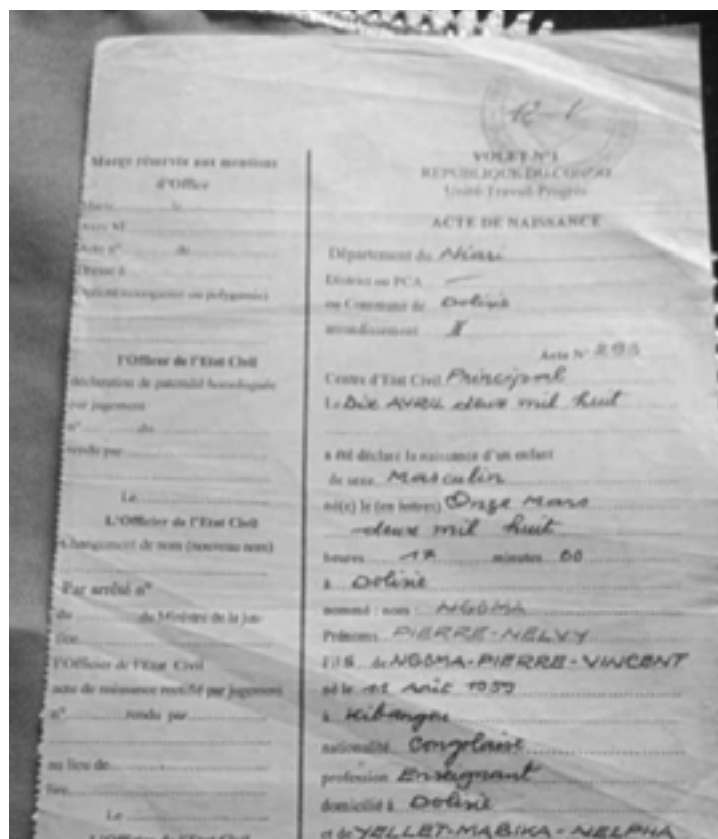 Marge réservée aux mentions
d'Office
Marié le
Avec M
Acte n° de
Dressé à
l'Officer de l'Etat Civil
déclaration de paternité homologuée
par jugement
n° du
rendu par
Le
L'Officier de l'Etat Civil
Changement de nom (nouveau nom)
Par arrêté n°
du du Ministre de la Jus-
tice
l'Officier de l'Etat Civil
acte de naissance rectifié par jugement
n° rendu par
au lieu de
lire
Le
L'Officier de l'Etat Civil
12-6
VOLET N°1
REPUBLIQUE DU CONGO
Unité-Travail-Progrès
ACTE DE NAISSANCE
Département du Niari
District ou PCA —
ou Commune de Dolisie
arrondissement II
Acte N° 293
Centre d'Etat Civil Principal
Le Dix AVRIL deux mil huit
a été déclaré la naissance d'un enfant
de sexe Masculin
né(e) le (en lettres) Onze Mars
deux mil huit
heures 17 minutes 00
à Dolisie
nommé : nom : NGOMA
Prénoms PIERRE-NELVY
FilS de NGOMA-PIERRE-VINCENT
né le 11 Août 1959
à Kibangou
nationalité Congolaise
profession Enseignant
domicilié à Dolisie
et de YELLET-MABIKA-NELPHA